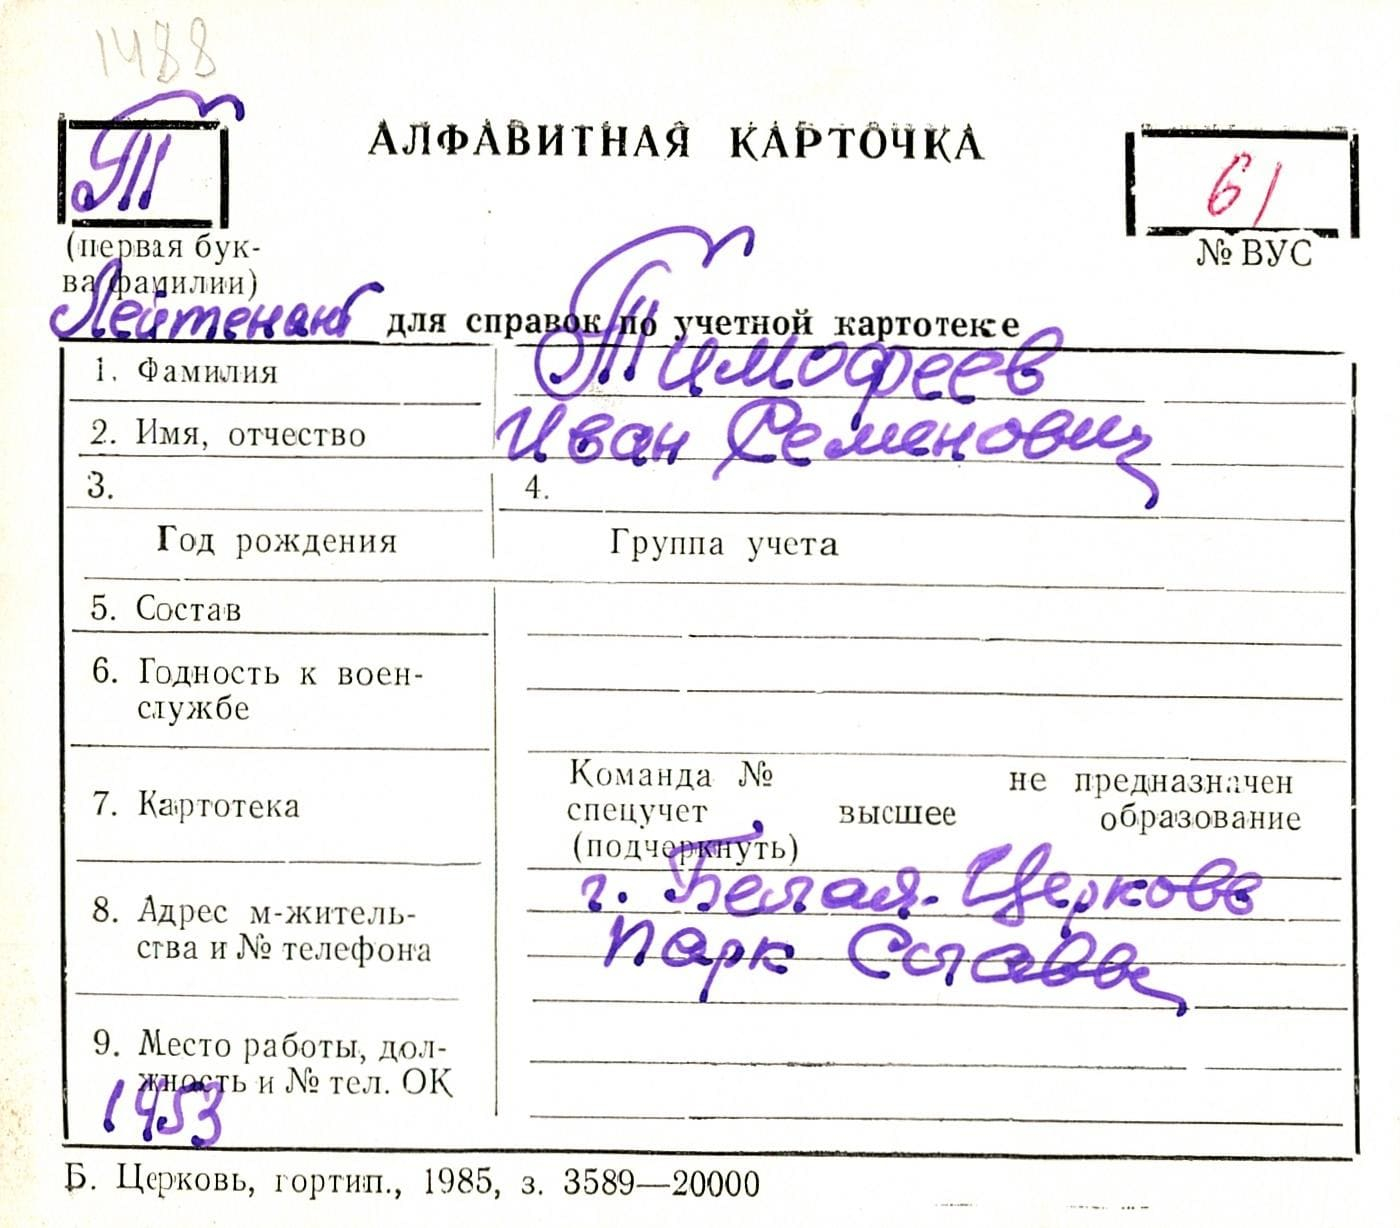 1488
Т
АЛФАВИТНАЯ КАРТОЧКА
61
(первая бук-
ва фамилии)
№ ВУС
Лейтенант для справок по учетной картотеке
1. Фамилия Тимофеев
2. Имя, отчество Иван Семенович
3. 4.
Год рождения Группа учета
5. Состав
6. Годность к воен-
службе
7. Картотека
Команда № не предназначен
спецучет, высшее образование
(подчеркнуть)
8. Адрес м-житель-
ства и № телефона
г. Белая-Церковь
Парк Слава
9. Место работы, дол-
жность и № тел. ОК
1953
Б. Церковь, гортип., 1985, з. 3589—20000